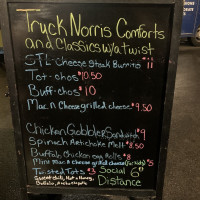 Truck Norris Comforts
and Classics w/a twist
STL-cheese Steak Burrito $11
Tot-chos $10.50
Buff-chos $10
Mac n Cheese grilled cheese $9.50
Chicken Gobbler Sandwich $9
Spinach Artichoke Melt $8.50
Buffalo Chicken egg Rolls $8
Mini Mac n cheese grilled cheese (for kids) $5
Twisted Tots $3
Social 6'
Distance